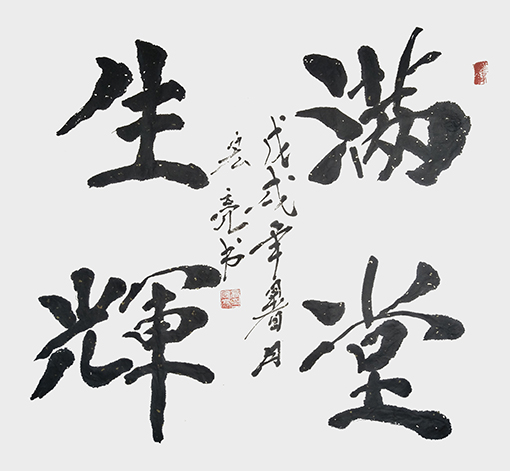 满堂
生輝
戊戌年暑月
宏亮书